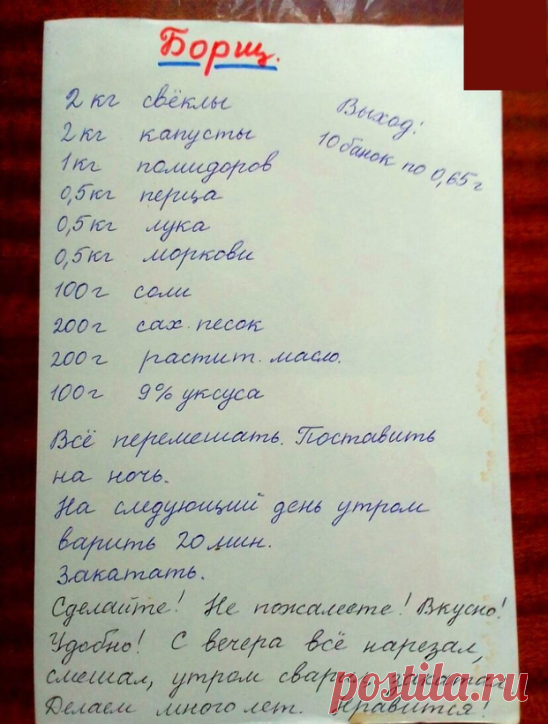 Борщ.
2 кг свёклы
2 кг капусты
1 кг помидоров
0,5 кг перца
0,5 кг лука
0,5 кг моркови
100 г соли
200 г сах. песок
200 г растит. масло.
100 г 9% уксуса
Выход:
10 банок по 0,65 г
Всё перемешать. Поставить
на ночь.
На следующий день утром
варить 20 мин.
Закатать.
Сделайте! Не пожалеете! Вкусно!
Удобно! С вечера всё нарезал,
смешал, утром сварил, закатал
Делаем много лет. Нравится!
postila.ru